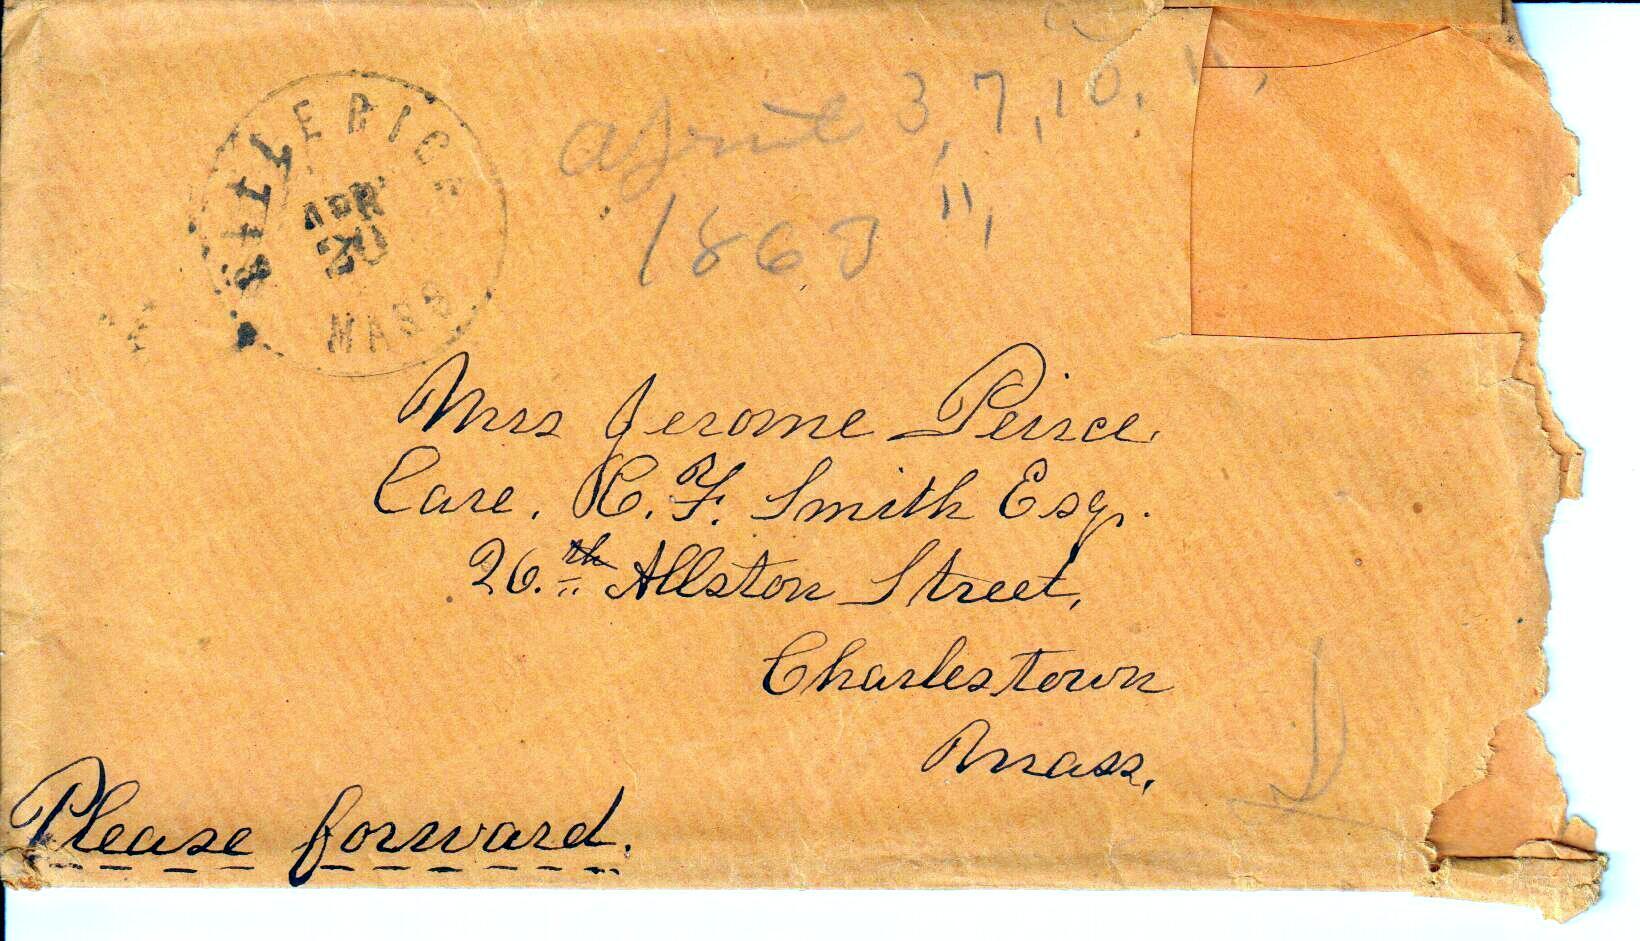 BILLERICA
APR
20
MASS
April 3, 7, 10, 11,
1863 ",
Mrs Jerome Peirce.
Care. C. F. Smith Esq.
26.th Allston Street,
Charlestown
Mass.
Please forward.